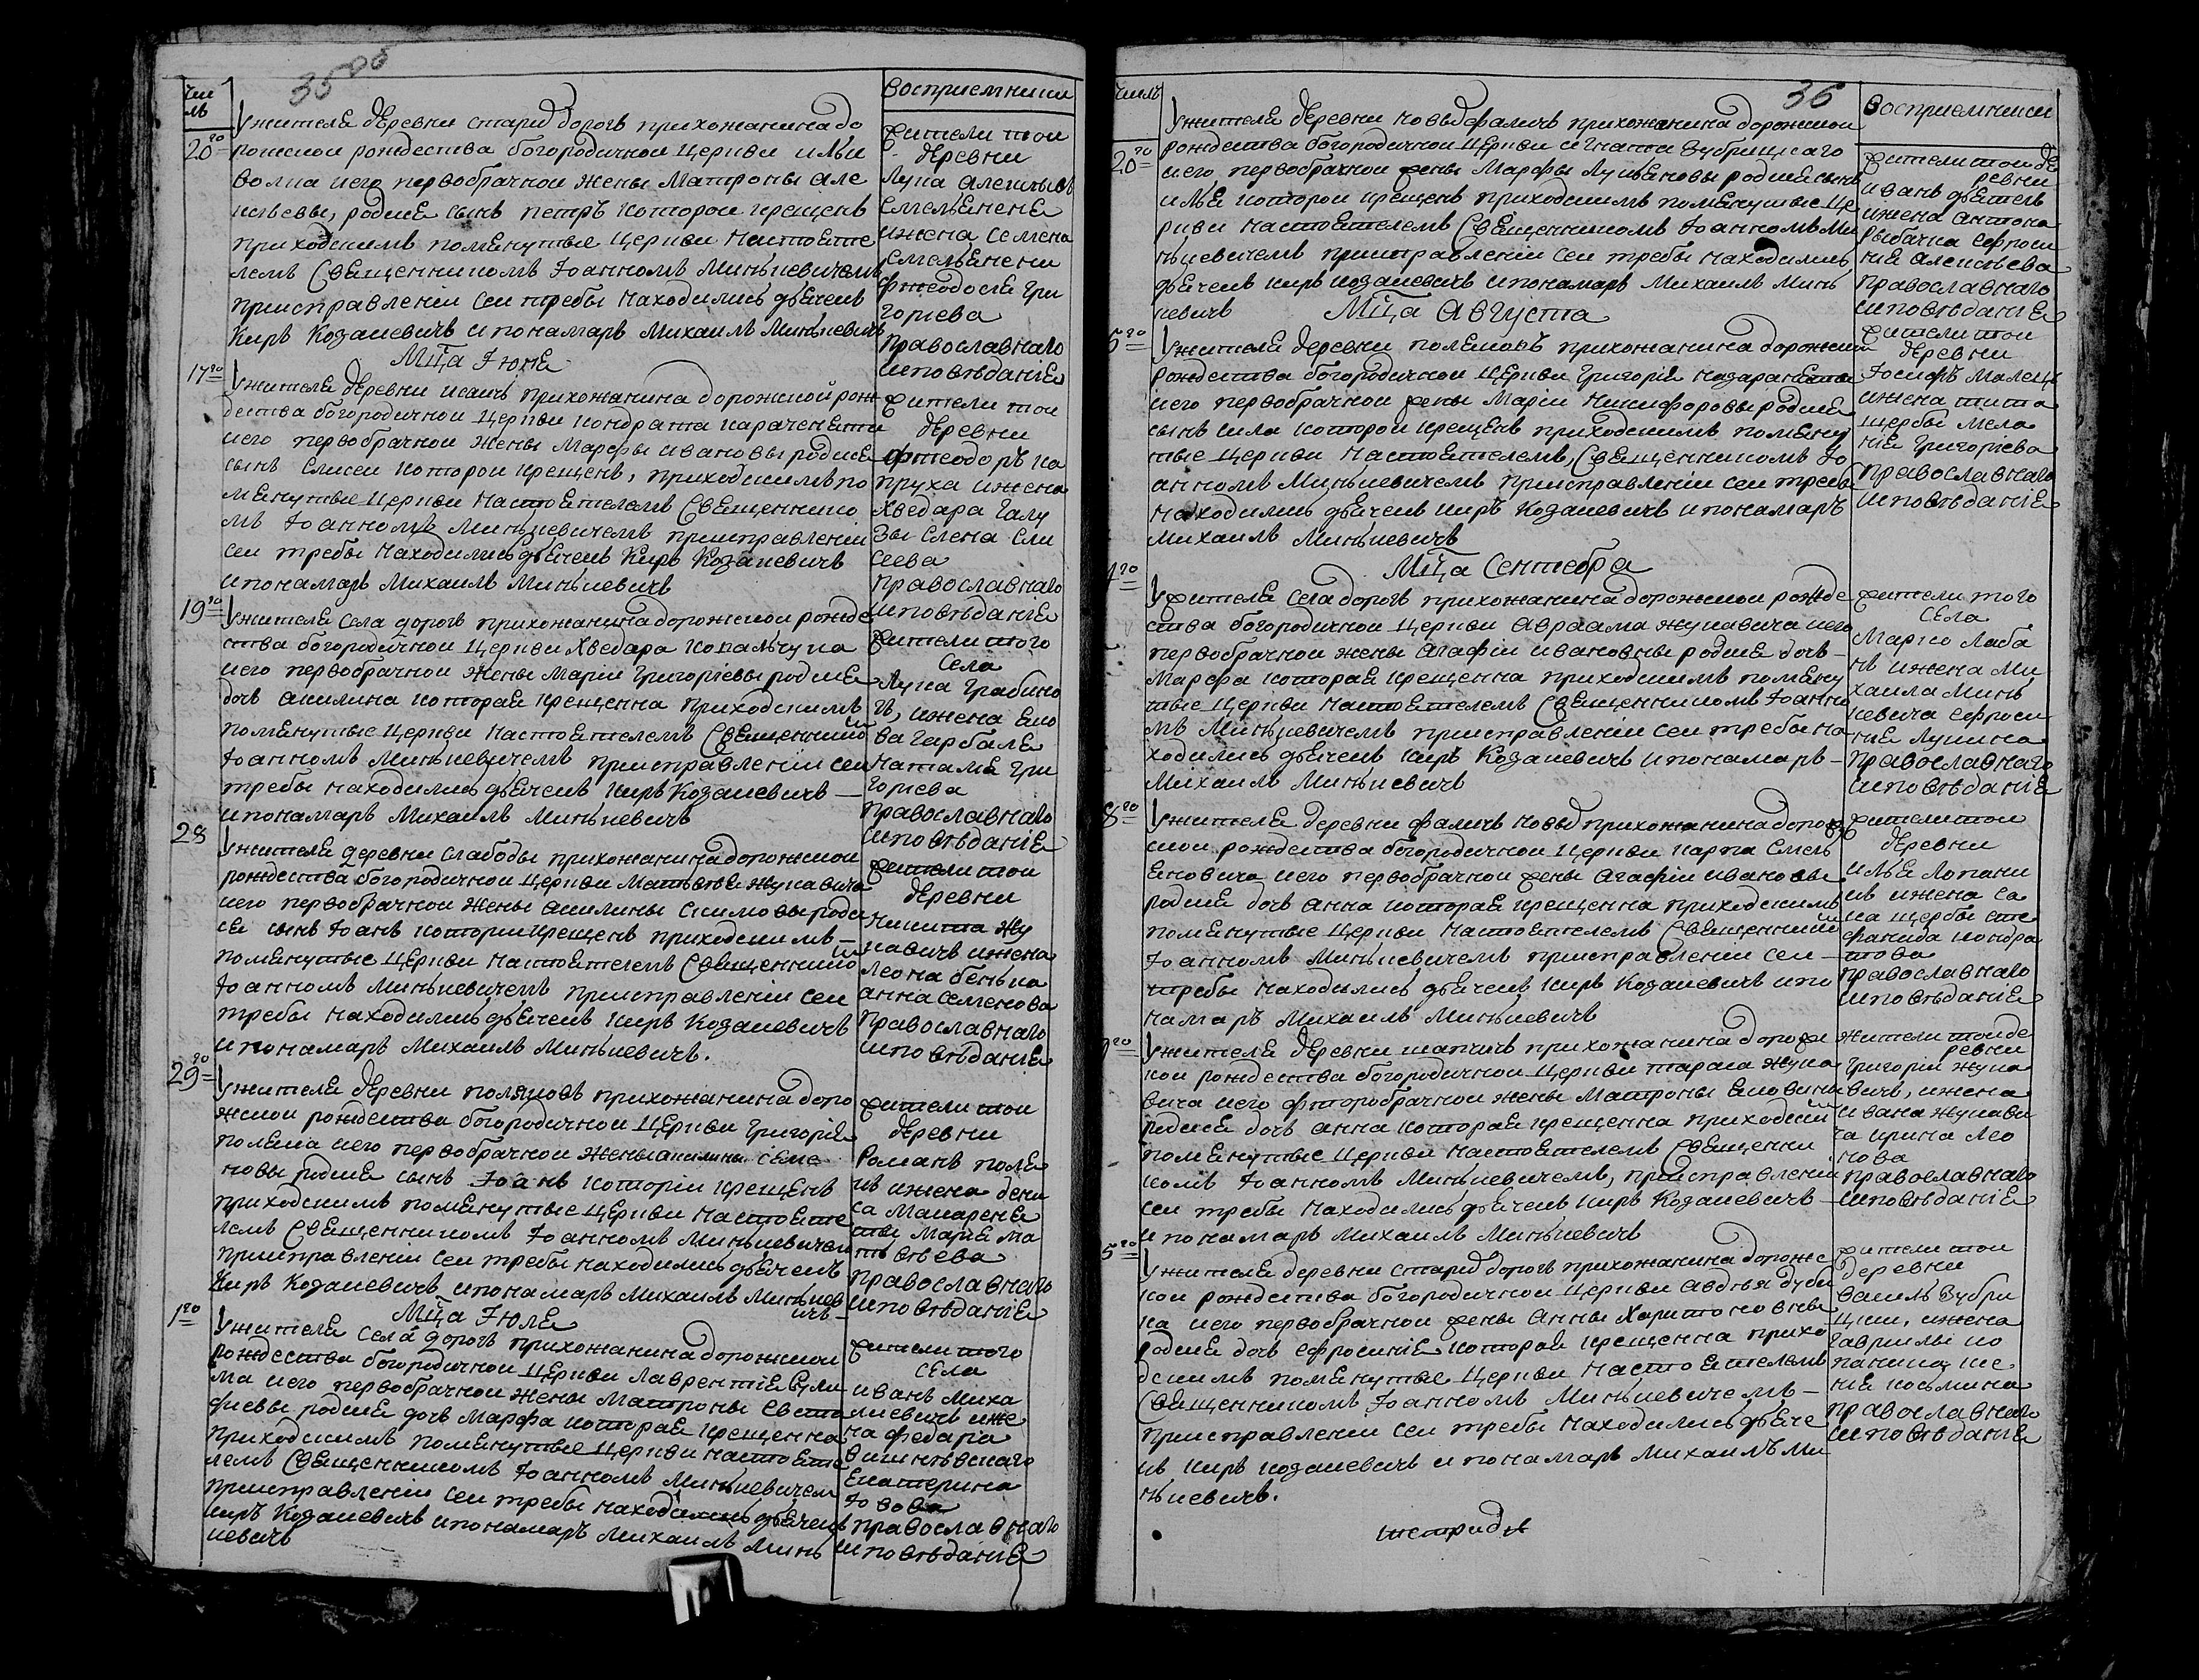 35об
Чис
ла
Восприемники
20го
У жителя деревни старид дорогъ прихожанина до
рожской рождества богородичной Церкви Ильи
Волка и его первобрачной жены Матроны Але
ксѣевы, родися сынъ петръ которои крещенъ
приходскимъ помянутыя Церкви Настояте
лемъ Священникомъ Иоанномъ Минкевичемъ
приисправленіи сеи требы находились дьячекъ
Киръ Козакевичъ и понамаръ Михаилъ Минкевичъ
жители тои
деревни
Лука Алексѣевъ
Емельяненя
и жена Семена
Емельянени
Фтеодосія Гри
горіева
православнаго
исповѣданія
Мца Июня
17го
У жителя деревни исаичъ прихожанина дорожской рож
дества богородичной Церкви Кондрата Караченяти
и его первобрачной жены Марфы Ивановы родися
сынъ Елисеи которои крещенъ, приходскимъ по
мянутыя Церкви Настоятелемъ Священнико
мъ Иоанномъ Минкевичемъ приисправленіи
сеи требы находились дьячекъ Киръ Козакевичъ
и понамаръ Михаилъ Минкевичъ
жители тои
деревни
Фтеодоръ ка
пруха и жена
Хведара Галу
зы Елена Ели
сеева
православнаго
исповѣданія
19го
У жителя Села дорогъ прихожанина дорожской рожде
ства богородичной Церкви Хведара Ковальчука
и его первобрачной жены Маріи Григоріевы родися
дочь Акилина которая крещенна приходскимъ
помянутыя Церкви Настоятелемъ Священникомъ
Иоанномъ Минкевичемъ приисправленіи сеи
требы находились дьячекъ Киръ Козакевичъ
и понамаръ Михаилъ Минкевичъ
жители того
Села
Лука Грабино
гъ, и жена Яко
ва Гарбаля
Наталія Гри
горіева
православнаго
исповѣданія
28
У жителя деревни Слабоды прихожанина дорожской
рождества богородичной Церкви Матвѣя Жукавича
и его первобрачной жены Акилины Акимовы роди
ся сынъ Иоанъ которіи крещенъ приходскимъ
помянутыя Церкви Настоятелемъ Священникомъ
Иоанномъ Минкевичемъ приисправленіи сеи
требы находились дьячекъ Киръ Козакевичъ
и понамаръ Михаилъ Минкевичъ.
жители тои
деревни
Никита Жу
кавичъ и жена
Леона бенька
Анна Семенова
православнаго
исповѣданія
29го
У жителя деревни поляковъ прихожанина доро
жской рождества богородичной Церкви Григорія
поляка и его первобрачной жены акилины Семе
новы родися сынъ Иоанъ которіи крещенъ
приходскимъ помянутыя Церкви Настояте
лемъ Священникомъ Иоанномъ Минкевичемъ
приисправленіи сеи требы находились дьячекъ
Киръ Козакевичъ и понамаръ Михаилъ Минкев
ичъ
жители тои
деревни
Романъ поля
къ и жена дени
са Макареня
ти Марія Ма
твѣева
православнаго
исповѣданія
Мца Июля
1го
У жителя Села дорогъ прихожанина дорожской
рождества богородичной Церкви Лаврентія Сули
ма и его первобрачной жены Матроны Евста
фіевы родися дочь Марфа которая крещенна
приходскимъ помянутыя Церкви Настояте
лемъ Священникомъ Иоанномъ Минкевичемъ
приисправленіи сеи требы находились дьячекъ
Киръ Козакевичъ и понамаръ Михаилъ Минь
кевичъ
жители того
Села
Иванъ Миха
лкевичъ и же
на федара
Вишневскаго
Екатерина
Иовова
православнаго
исповѣданія
36
Числа
Восприемники
20го
У жителя деревни новыд фаличъ прихожанина дорожской
рождества богородичной Церкви Игната Зубрицкаго
и его первобрачной жены Марфы Лукьяновы родися сынъ
Илья которои крещенъ приходскимъ помянутыя Це
ркви Настоятелемъ Священникомъ Иоанномъ Ми
нкевичемъ приисправленіи сеи требы находились
дьячекъ киръ козакевичъ и понамаръ Михаилъ Минь
кевичъ
жители тои де
ревни
Иванъ дьятель
и жена Антона
Рыбачка Ефроси
нія Алексѣева
православнаго
исповѣданія
Мца Августа
5го
У жителя деревни поляковъ прихожанина дорожской
рождества богородичной Церкви Григорія Назаранятка
и его первобрачной жены Маріи Никифоровы родися
сынъ Сила которои крещенъ приходскимъ помяну
тыя Церкви Настоятелемъ, Священникомъ Ио
анномъ Минкевичемъ приисправленіи сеи требы
находились дьячекъ киръ Козакевичъ и понамаръ
Михаилъ Минкевичъ
жители тои
деревни
Иосифъ Малец
и жена тита
щербы Мела
нія Григоріева
православнаго
исповѣданія
Мца Сентебра
4го
У жителя Села дорогъ прихожанина дорожской рожде
ства богородичной Церкви Авраама Жукавича и его
первобрачной жены Агафіи Ивановны родися дочь
Марфа которая крещенна приходскимъ помяну
тыя Церкви Настоятелемъ Священникомъ Иоанно
мъ Минкевичемъ приисправленіи сеи требы на
ходились дьячекъ Киръ Козакевичъ и понамаръ
Михаилъ Минкевичъ
жители того
Села
Марко Лаба
нъ и жена Ми
хаила Минь
кевича Ефроси
нія Лукина
православнаго
исповѣданія
8го
У жителя деревни фаличъ новыд прихожанина дорож
ской рождества богородичной Церкви Карпа Емель
яновича и его первобрачной жены Агафіи Ивановы
родися дочь Анна которая крещенна приходскимъ
помянутыя Церкви Настоятелемъ Священникомъ
Иоанномъ Минкевичемъ приисправленіи сеи
требы находились дьячекъ Киръ Козакевичъ и по
намаръ Михаилъ Минкевичъ
жители тои
деревни
Илья Лопани
къ и жена Са
ка щербы сте
фанида Кондра
това
православнаго
исповѣданія
9го
У жителя деревни шапчичъ прихожанина дорожс
кои рождества богородичной Церкви тараса Жука
вича и его фторобрачной жены Матроны Яковины
родися дочь Анна которая крещенна приходским
помянутыя Церкви Настоятелемъ Священни
комъ Иоанномъ Минкевичемъ, приисправленіи
сеи требы находились дьячекъ Киръ Козакевичъ
и понамаръ Михаилъ Минкевичъ
жители тои де
ревни
Григоріи Жука
вичъ, и жена
Ивана Жукави
ча Ирина Лео
нова
православнаго
исповѣданія
5го
У жителя деревни старид дорогъ прихожанина дорожс
кои рождества богородичной Церкви Авдѣя дуби
ка и его первобрачной жены Анны Харитоновны
родися дочь Ефросинія которая крещенна прихо
дскимъ помянутыя Церкви Настоятелемъ
Священникомъ Иоанномъ Минкевичемъ
приисправленіи сеи требы находились дьяче
къ киръ козакевичъ и понамаръ Михаилъ Ми
нкевичъ.
жители тои
деревни
Василь Зубри
цки, и жена
Гаврилы ко
паница ксе
нія косьмина
православнаго
исповѣданія